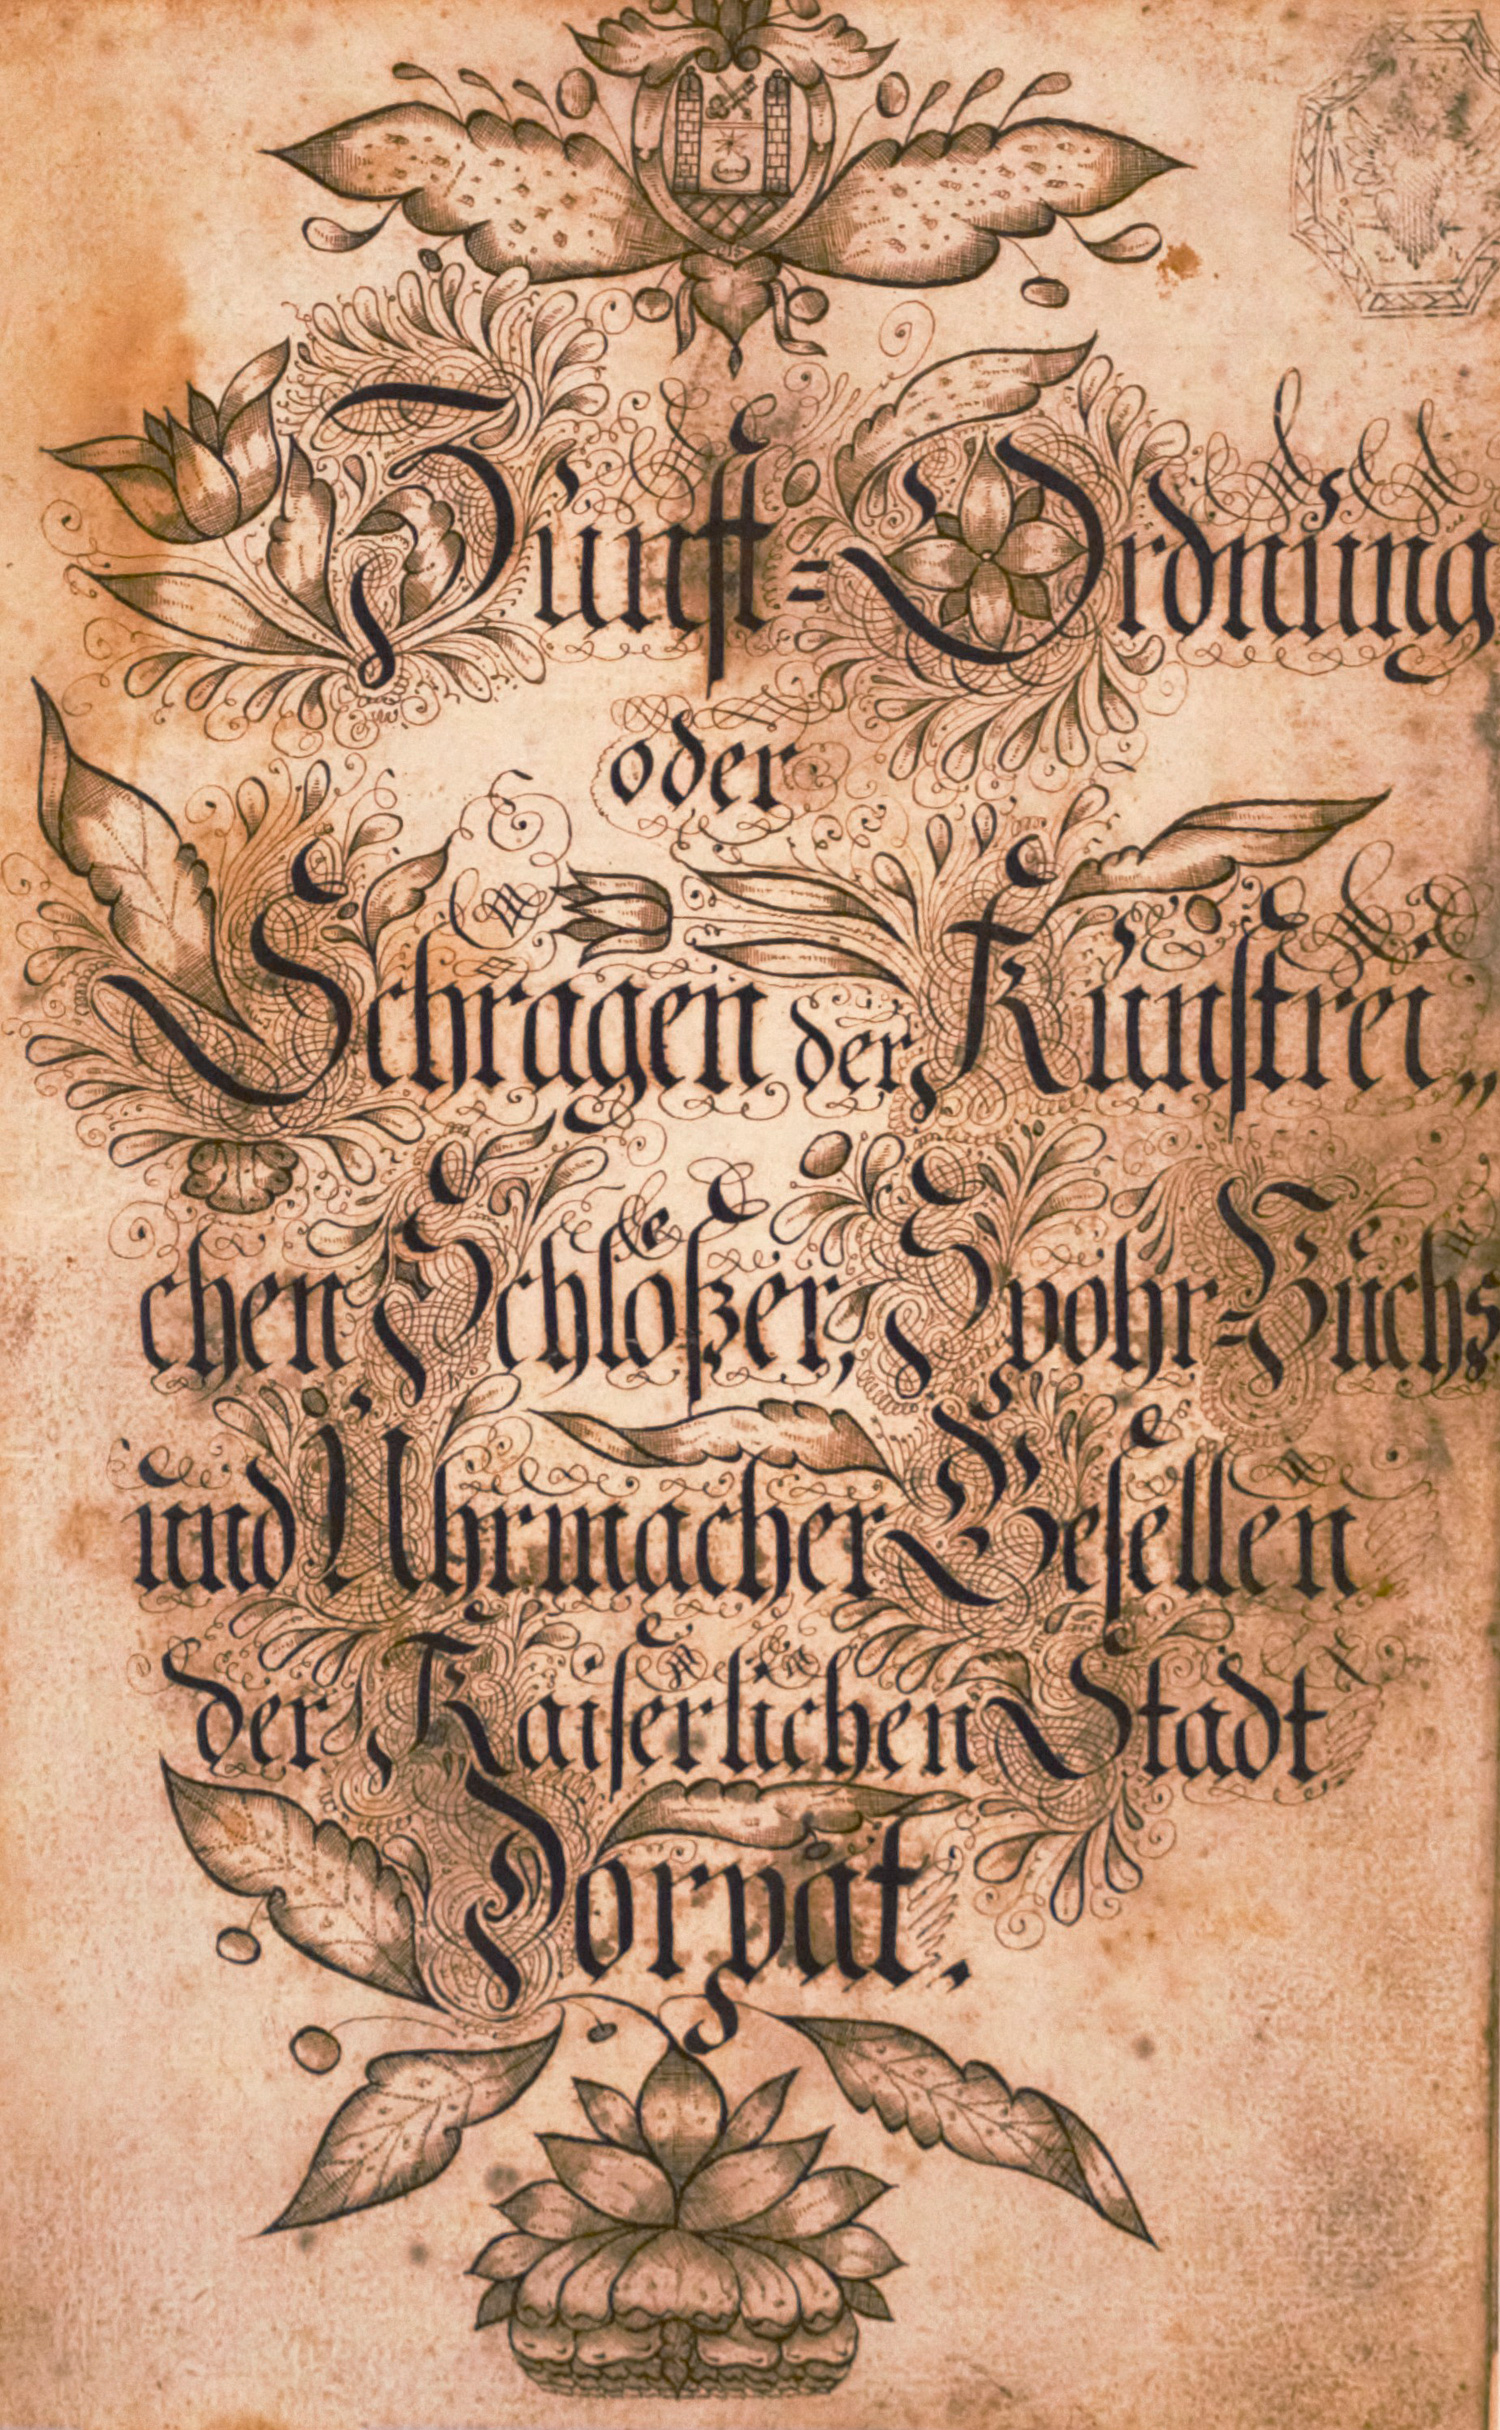 Zunft=Ordnung
oder
Schragen der Kunstrei„
chen Schlößer, Spohr=Büchs
und Uhrmacher Gesellen
der Kaiserlichen Stadt
Dorpat.